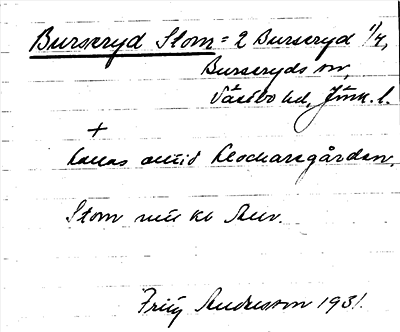 Burseryd Stom = 2 Burseryd 1/4,
Burseryds sn,
Västbo hd, Jönk. l.
+
Kallas allid Klockaregården.
Stom mll kl
Fritz Andersson 1931.